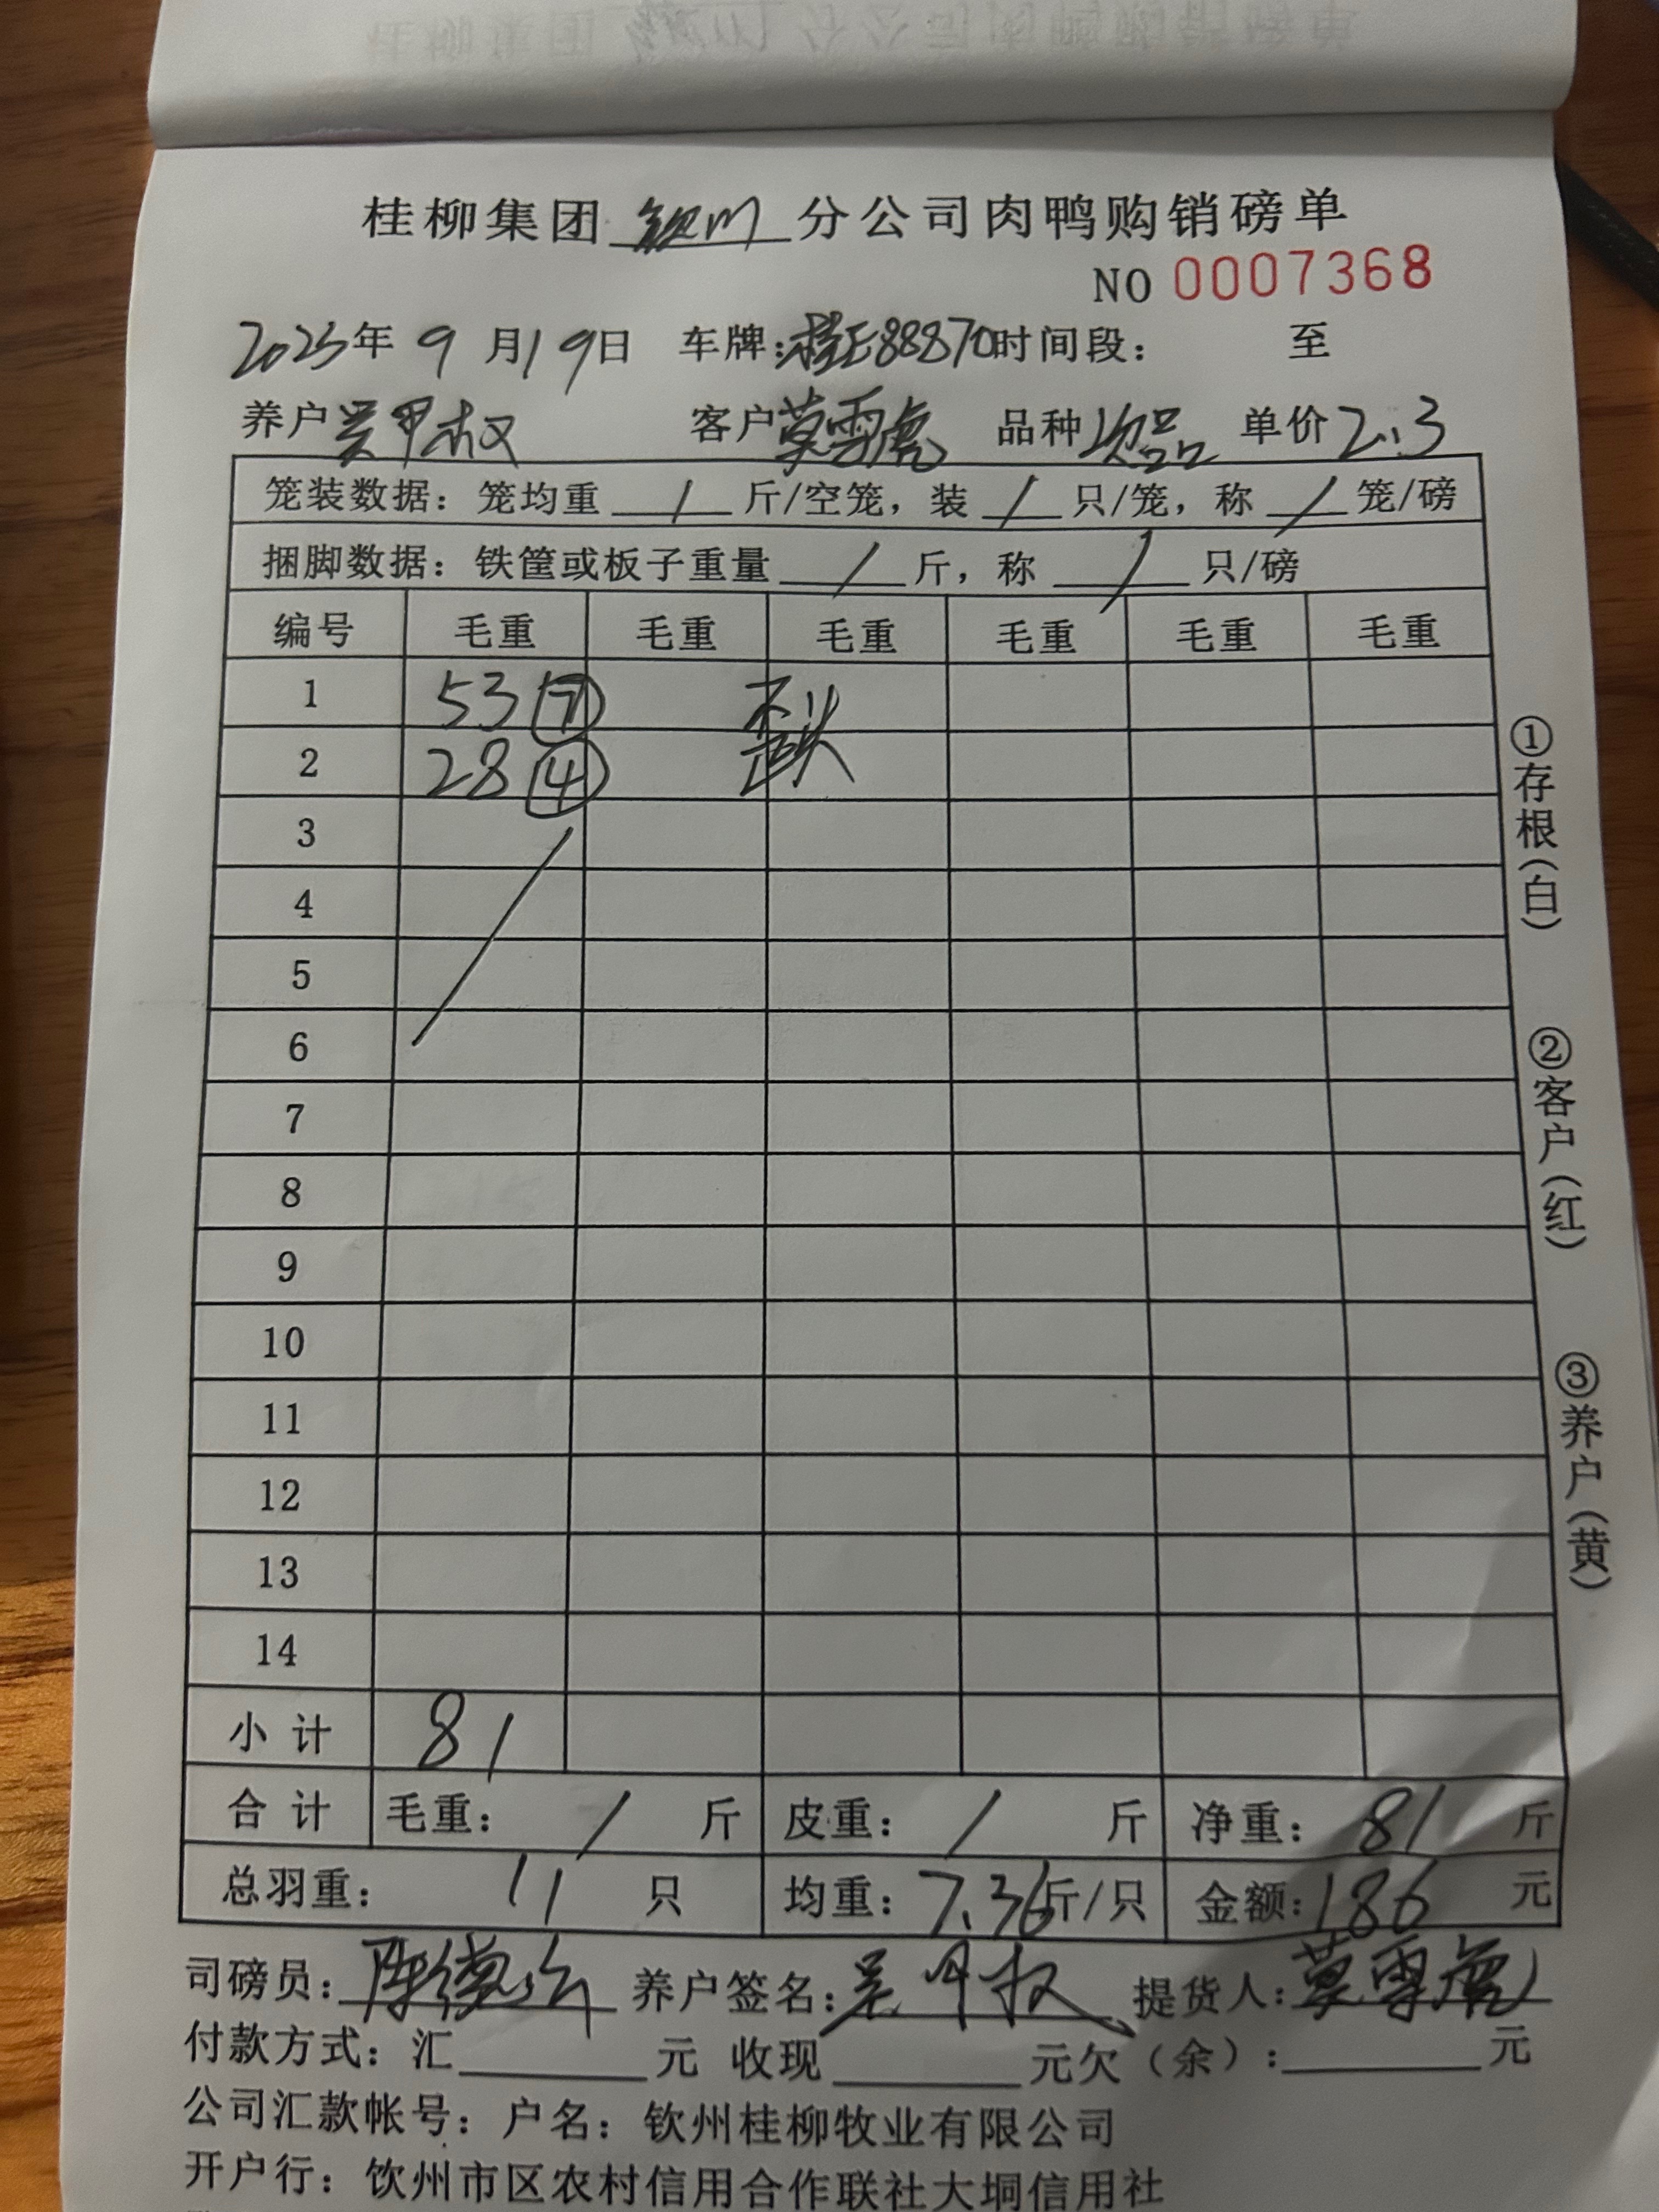 桂柳集团钦州分公司肉鸭购销磅单
NO 0007368
2025年9月19日 车牌:桂E88870时间段: 至
养户吴甲权 客户莫雪虎 品种次品 单价2.3
笼装数据:笼均重 / 斤/空笼,装 / 只/笼,称 / 笼/磅
捆脚数据:铁筐或板子重量 / 斤,称 / 只/磅
编号 毛重 毛重 毛重 毛重 毛重 毛重
1 53⑦ 歪头
2 28④
3
4
5
6
7
8
9
10
11
12
13
14
小计 81
合计 毛重: / 斤 皮重: / 斤 净重: 81 斤
总羽重: 11 只 均重:7.36斤/只 金额:186元
司磅员: 养户签名:吴甲权 提货人:莫雪虎
付款方式:汇 元 收现 元欠(余): 元
公司汇款帐号:户名:钦州桂柳牧业有限公司
开户行:钦州市区农村信用合作联社大垌信用社
①存根(白)
②客户(红)
③养户(黄)